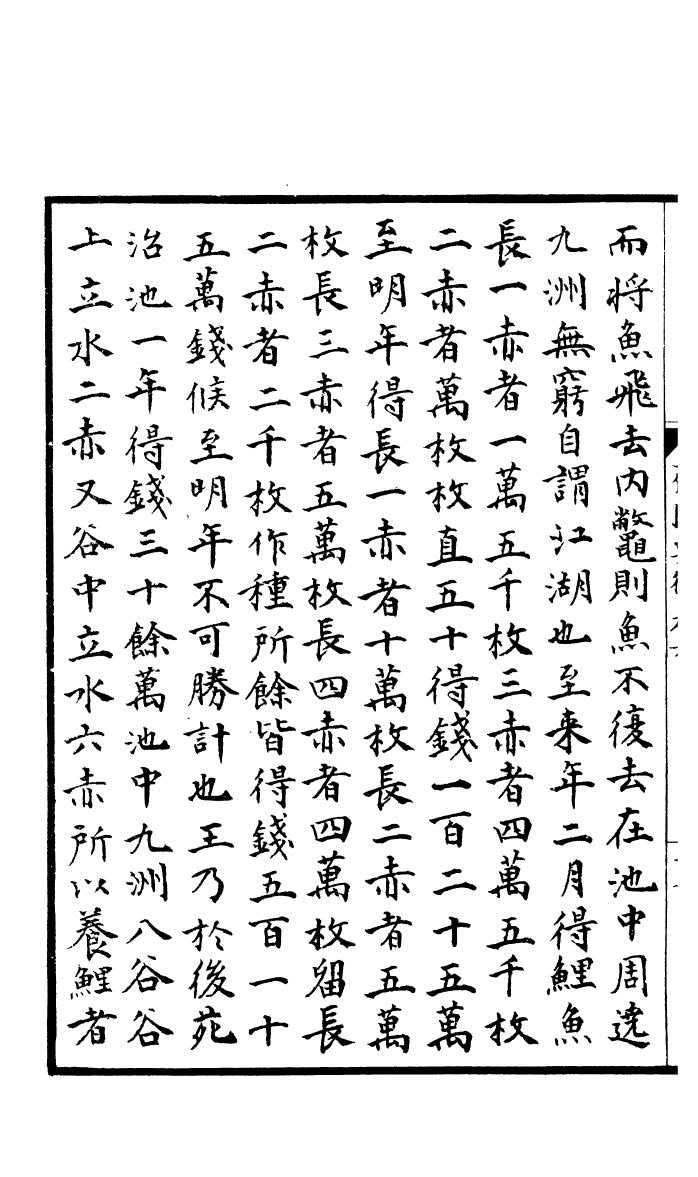 而将魚飛去内鼈則魚不復去在池中周遶
九洲無窮自謂江湖也至来年二月得鯉魚
長一赤者一萬五千枚三赤者四萬五千枚
二赤者萬枚枚直五十得錢一百二十五萬
至明年得長一赤者十萬枚長二赤者五萬
枚長三赤者五萬枚長四赤者四萬枚留長
二赤者二千枚作種所餘皆得錢五百一十
五萬錢候至明年不可勝計也王乃於後苑
治池一年得錢三十餘萬池中九洲八谷谷
上立水二赤又谷中立水六赤所以養鯉者